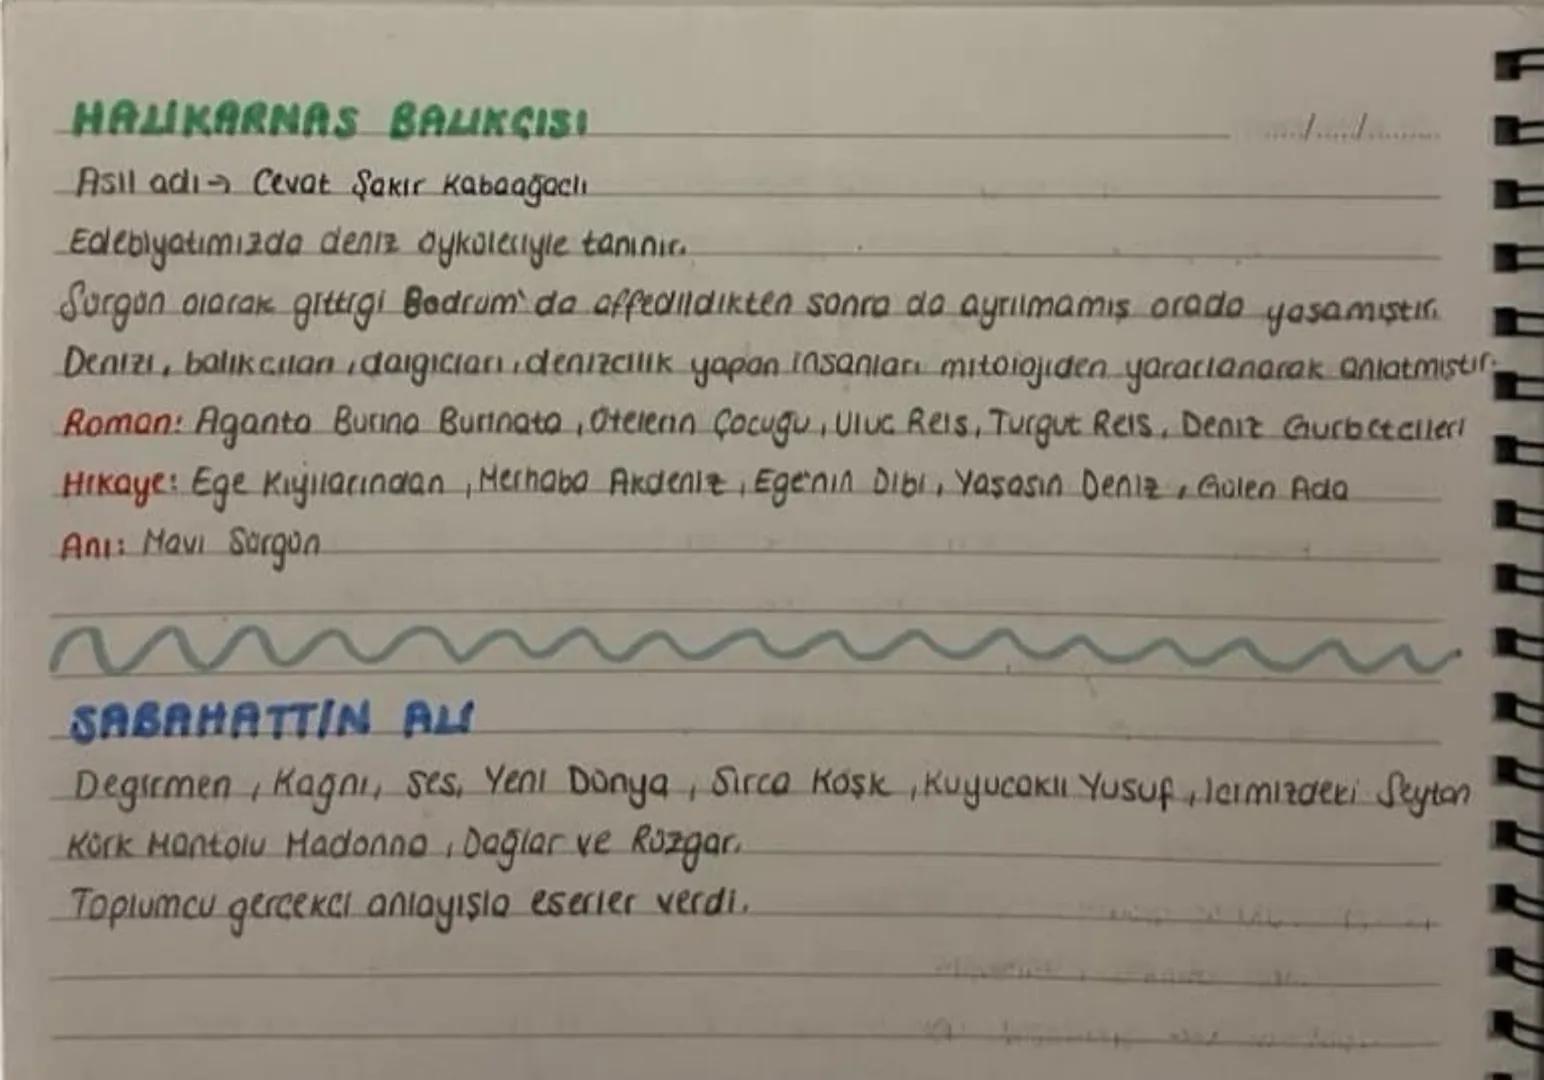 HALİKARNAS BALIKÇISI
..../..../........
Asıl adı → Cevat Şakir Kabaağaçlı
Edebiyatımızda deniz öyküleriyle tanınır.
Sürgün olarak gittiği Bodrum'da affedildikten sonra da ayrılmamış orada yaşamıştır.
Denizi, balıkcıları, dalgıcları, denizcilik yapan insanları mitolojiden yararlanarak anlatmıştır.
Roman: Aganta Burina Burinata, Ötelerin Çocuğu, Uluc Reis, Turgut Reis, Deniz Gurbetcileri
Hikaye: Ege Kıyılarından, Merhaba Akdeniz, Ege'nin Dibi, Yaşasın Deniz, Gülen Ada
Anı: Mavi Sürgün
SABAHATTİN ALİ
Değirmen, Kağnı, Ses, Yeni Dünya, Sırca Köşk, Kuyucaklı Yusuf, İcimizdeki Şeytan
Kürk Mantolu Madonna, Dağlar ve Rüzgar.
Toplumcu gercekci anlayışla eserler verdi.